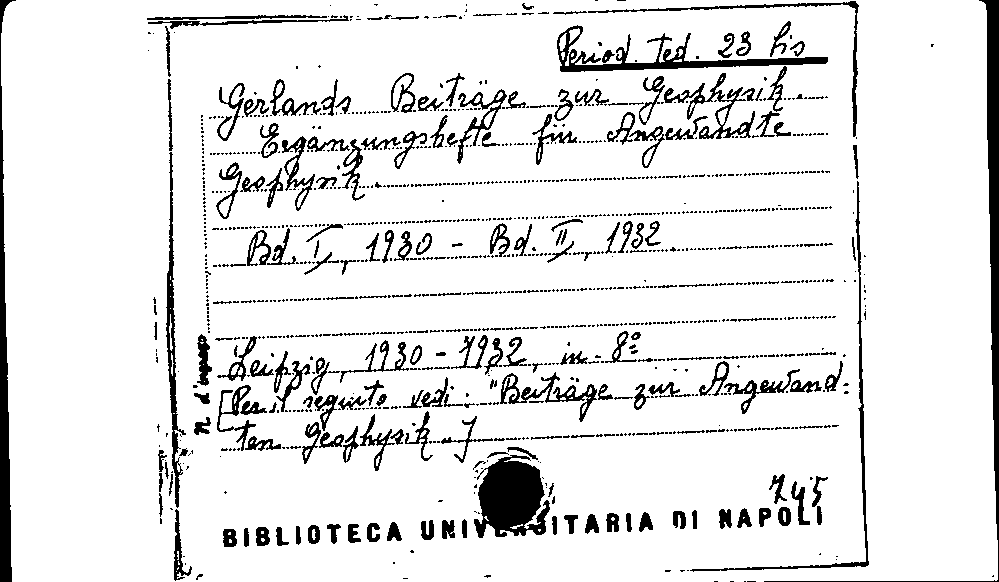 Period. Ted. 23 bis
Gerlands Beiträge zur Geophysik.
Ergänzungshefte für Angewandte
Geophysik.
Bd. I, 1930 - Bd. II, 1932.
Leipzig, 1930 - 1932, in - 8º.
[Per il seguito vedi: "Beiträge zur Angewand=
ten Geophysik.]
N. d'ingresso
745
BIBLIOTECA UNIVERSITARIA DI NAPOLI